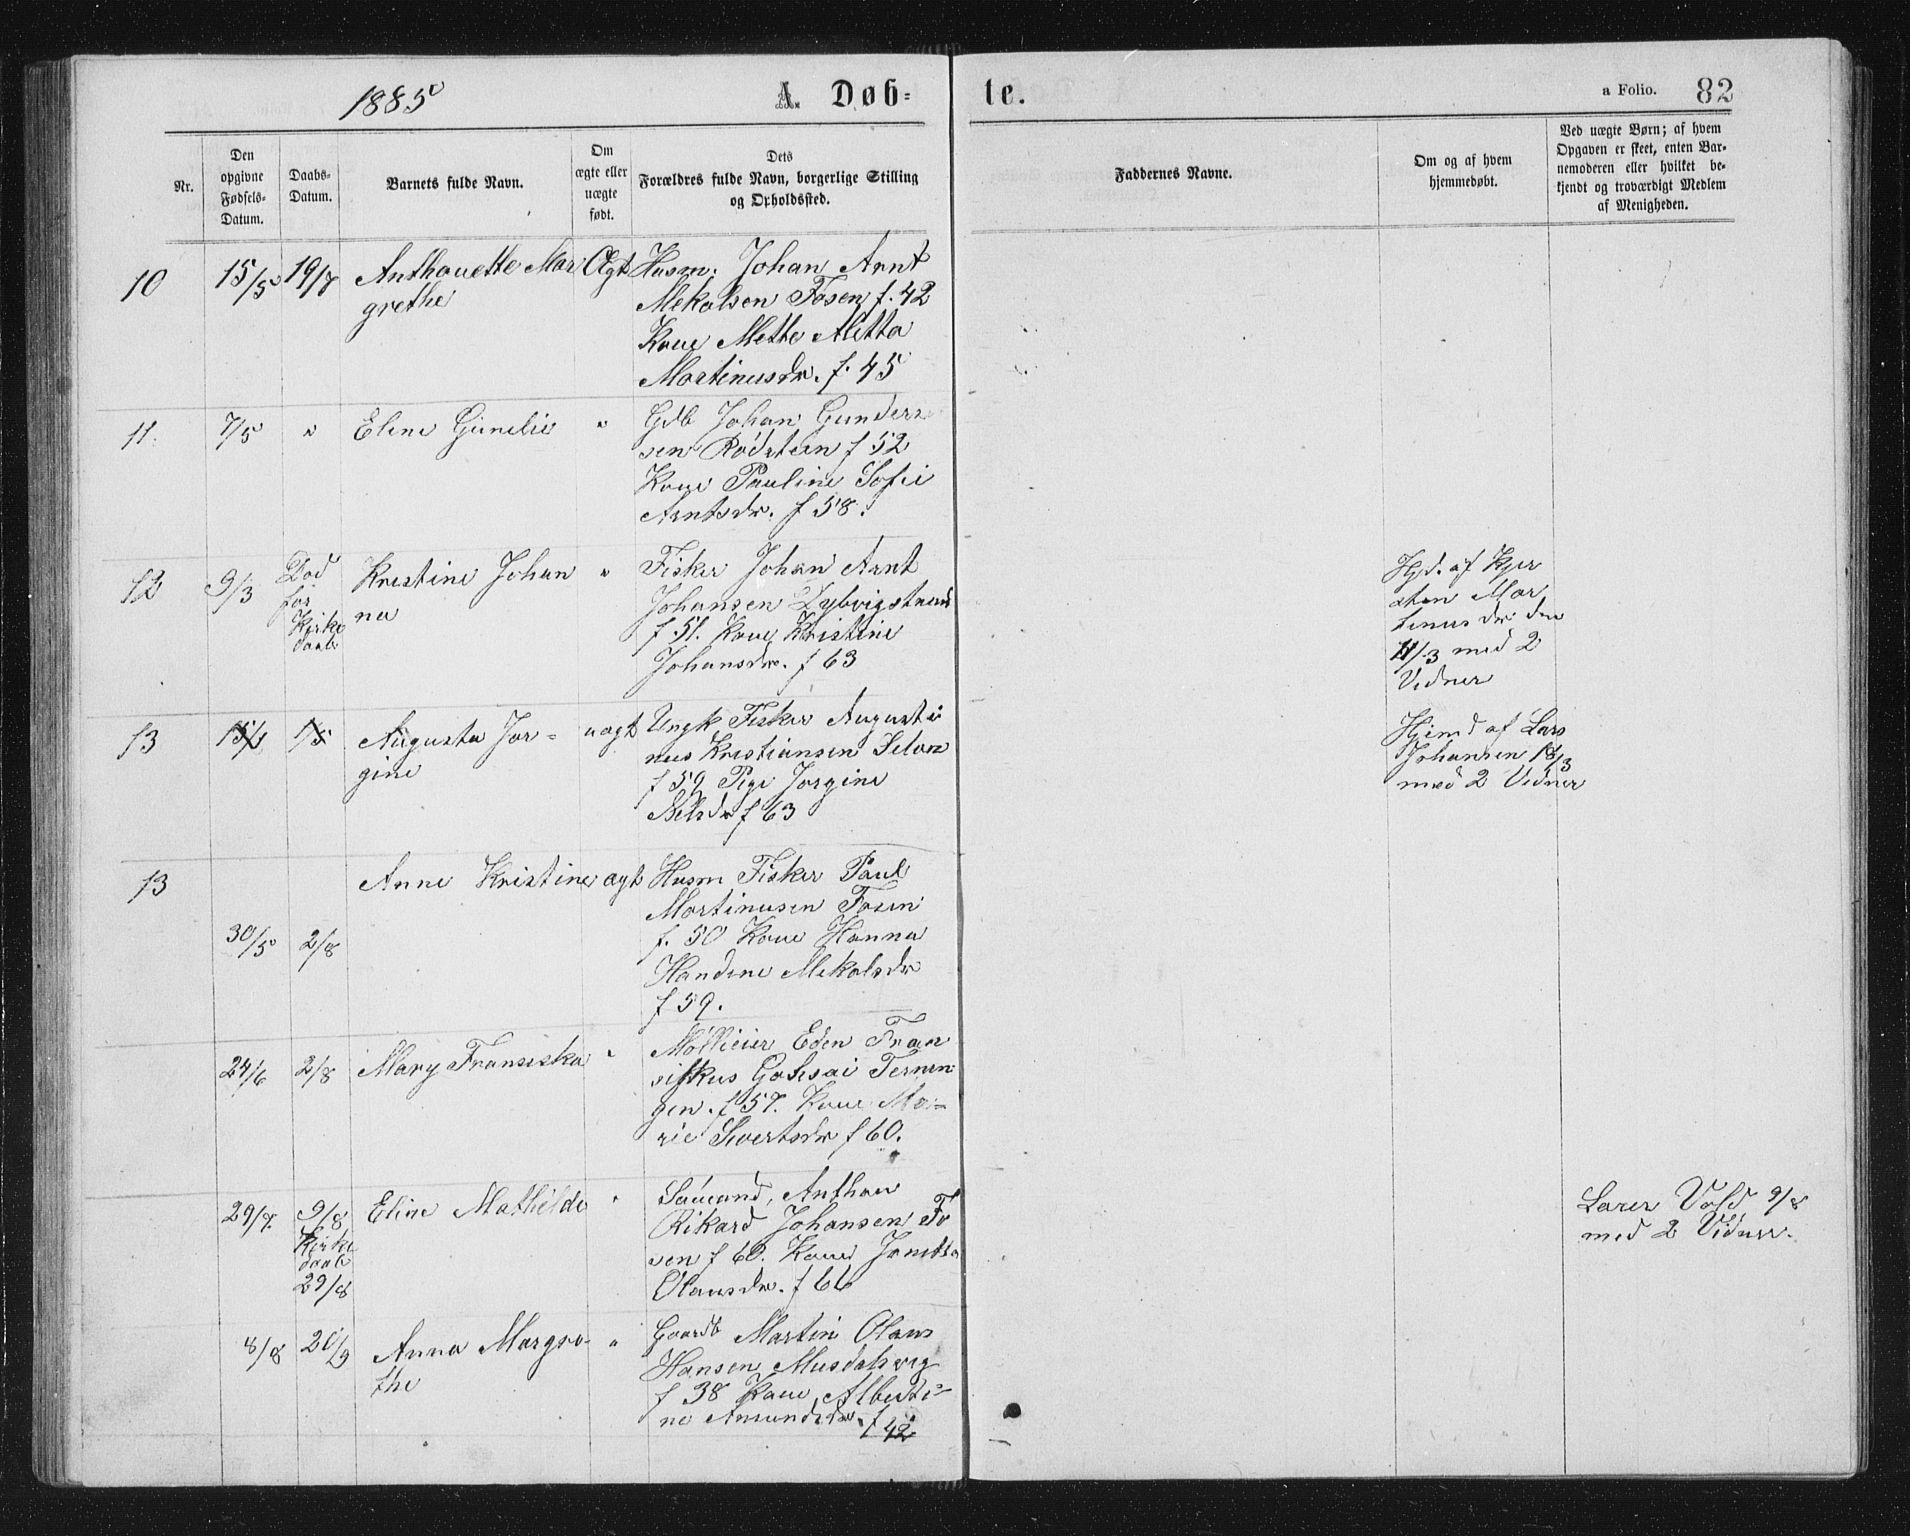 1885
A. Døb-
te.
a Folio. 82
Nr.
Den
opgivne
Fødsels-
Datum.
Daabs-
Datum.
Barnets fulde Navn.
Om
ægte eller
uægte
født.
Dets
Forældres fulde Navn, borgerlige Stilling
og Opholdssted.
Faddernes Navne.
Om og af hvem
hjemmedøbt.
Ved uægte Børn; af hvem
Opgaven er skeet, enten Bar-
nemoderen eller hvilket be-
kjendt og troværdigt Medlem
af Menigheden.
10 15/5 19/7 Anthonette Mar Ægt Husm. Johan Arnt
grethe Mekalsen Fosen f. 42
Kone Mette Alitta
Martinusdr. f. 45
11. 7/5 " Eline Gunelie " Gdb Johan Gunders
sen Rødstein f 52
Kone Pauline Sofie
Arntsdr. f 58.
12 9/3 Død Kristine Johan " Fisker Johan Arnt
før na Johansen Dybvigstrand
Kirke f. 51. Kone Kristine
daab Johansdr. f 63
Hjd. af Kjer
sten Mar
tinusdr den
11/3 med 2
Vidner
13 15/1 1/5 Augusta Jor- uagt Ungk Fisker Augusti
gine nus Kristiansen
f 59 Pige Jorgine
Nelsdr f 63
Hjemd af Lars
Johansen 18/3
med 2 Vidner
13 Anne Kristine agt Husm Fisker Paul
Martinusen Fosen
30/5 2/8 f. 50 Kone Hanna
Handine Mekalsdr
f 59.
24/6 2/8 Mary Fransiska " Eden Fran
siskus Ternin
gen. f 57. Kone Ma-
rie Sivertsdr f 60.
29/7. 9/8 Eline Mathilde " Anthon
Kirke Rikard Johansen Fo
daab sen f 60. Kone
29/8 Olausdr. f 66
Larer Vold 9/8
med 2 Vidner.
8/8 20/9 Anna Margre- " Gaardb Martin Olaus
the Hansen Musdalsvig
f 38 Kone Alberti-
ne Amundsdr. f 42